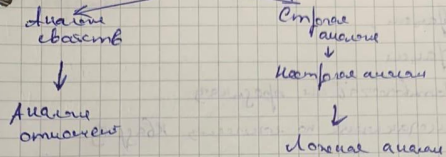 Аналогия
свойств
Аналогия
отношений
Строгая
аналогия
Нестрогая аналогия
Ложная аналогия